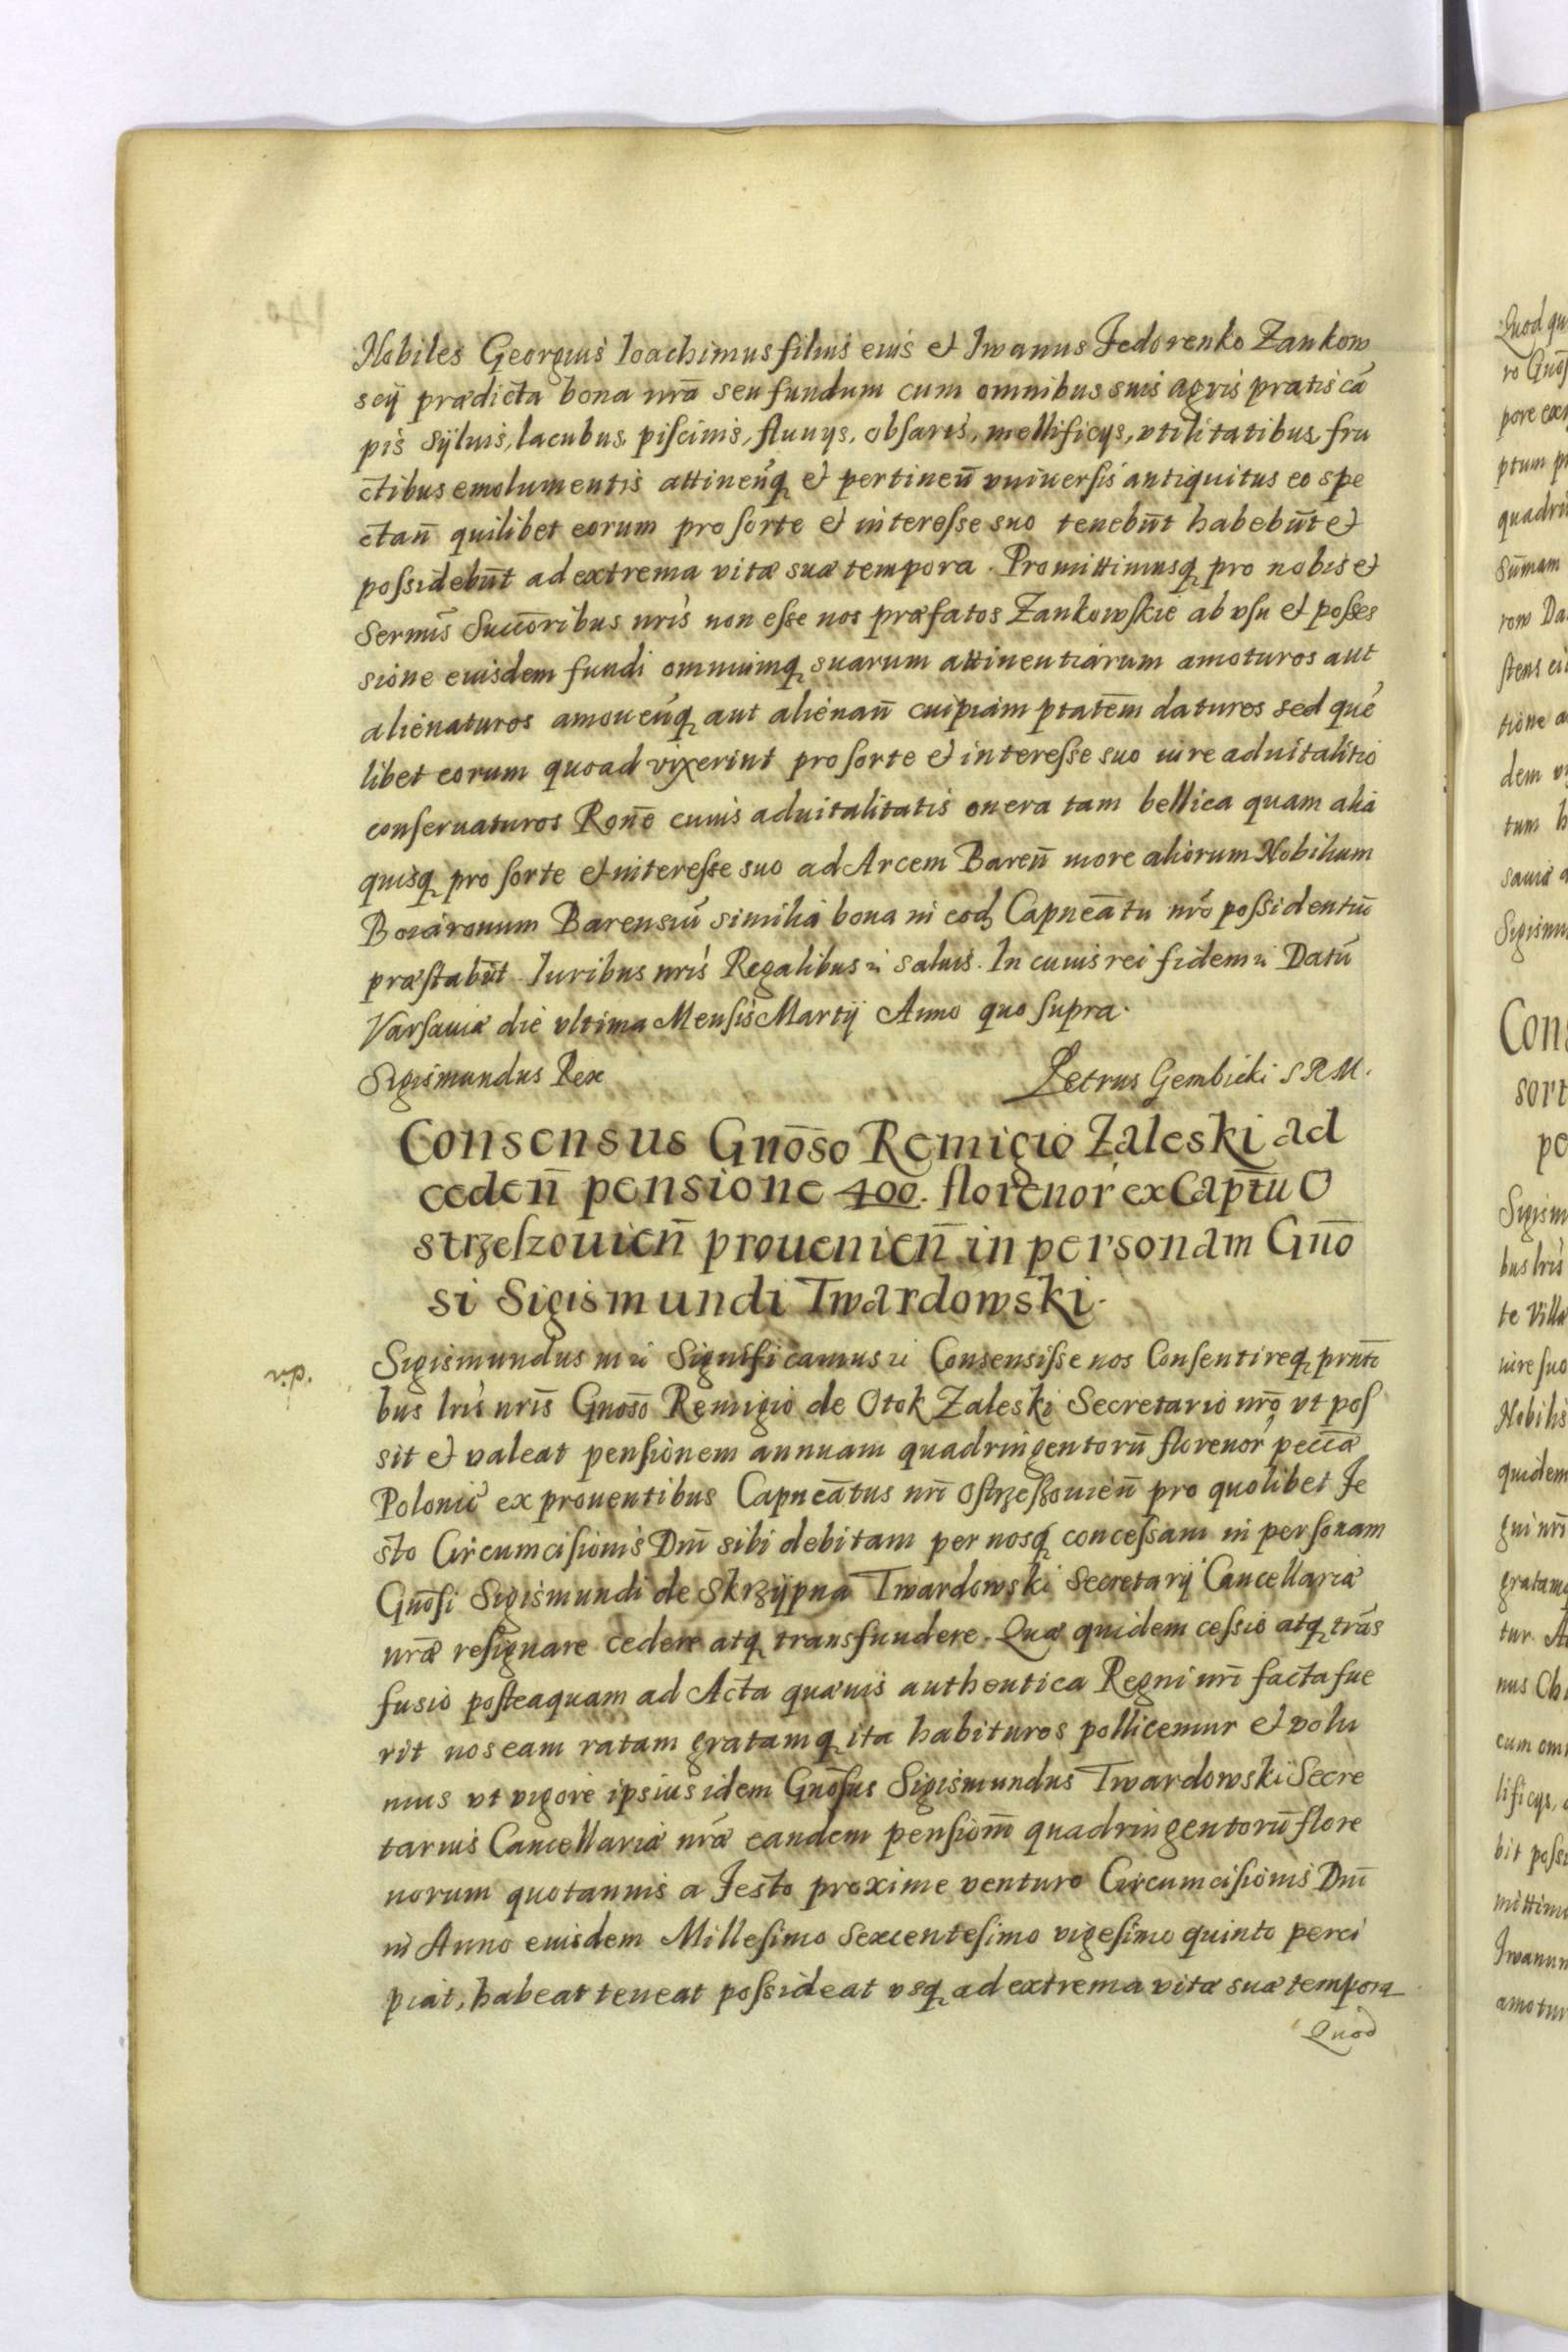 Nobiles Georgius Ioachimus filius eius et Iwanus Fedorenko Zankow
scij prædicta bona nrã seu fundum cum omnibus suis agris pratis cã
pis sÿluis, lacubus, piscinis, fluuijs, obsaris, mellificijs, vtilitatibus, fru
ctibus emolumentis attineñq et pertineñ vniuersis antiquitus eo spe
ctañ quilibet eorum pro sorte et interesse suo tenebũt habebũt et
possidebũt ad extrema vitæ suæ tempora. Promittimusq pro nobis et
Sermis̃ Succoribus nris̃ non esse nos præfatos Zankowskie ab vsu et posses
sione eiusdem fundi omniumq suarum attinentiarum amoturos aut
alienaturos amoueñq aut alienañ cuipiam ptatem̃ daturos sed quẽ
libet eorum quoad vixerint pro sorte et interesse suo iure aduitalitio
conseruaturos Roñe cuius aduitalitatis onera tam bellica quam alia
quisq pro sorte et interesse suo ad Arcem Bareñ more aliorum Nobilium
Boiaronum Barensiũ similia bona in eod Capneãtu nrõ possidentiũ
præstabũt. Iuribus nris̃ Regalibus ꝛc saluis. In cuius rei fidem ꝛc Datũ
Varsauiæ die vltima Mensis Martij Anno quo supra.
Sigismundus Rex Petrus Gembicki S R M.
Consensus Gnõso Remigio Zaleski ad
cedeñ pensione 400. florenor ex Captũ O
strzeszouieñ prouenieñ in personam Gnõ
si Sigismundi Twardowski.
Sigismundus III ꝛc Significamus ꝛc Consensisse nos Consentireq prntĩ
bus lris̃ nris̃ Gnosõ Remigio de Otok Zaleski Secretario nrõ vt pos
sit et valeat pensionem annuam quadringentorũ florenor peccæ̃
Polonic̃ ex prouentibus Capneãtus nrĩ Ostrzeszouieñ pro quolibet Fe
sto Circumcisionis Dnĩ sibi debitam per nosq concessam in personam
Gnõsi Sigismundi de Skrzÿpna Twardowski Secretarij Cancellariæ
nræ̃ resignare cedere atq transfundere. Quæ quidem cessio atq trãs
fusio posteaquam ad Acta quæuis authentica Regni nrĩ facta fue
rit nos eam ratam gratamq ita habituros pollicemur et volu
mus vt vigore ipsius idem Gnõsus Sigismundus Twardowski Secre
tarius Cancellariæ nræ̃ eandem pensionm̃ quadringentorũ flore
norum quotannis a Festo proxime venturo Circumcisionis Dnĩ
in Anno eiusdem Millesimo Sexcentesimo vigesimo quinto perci
piat, habeat teneat possideat vsq ad extrema vitæ suæ tempora
Quod